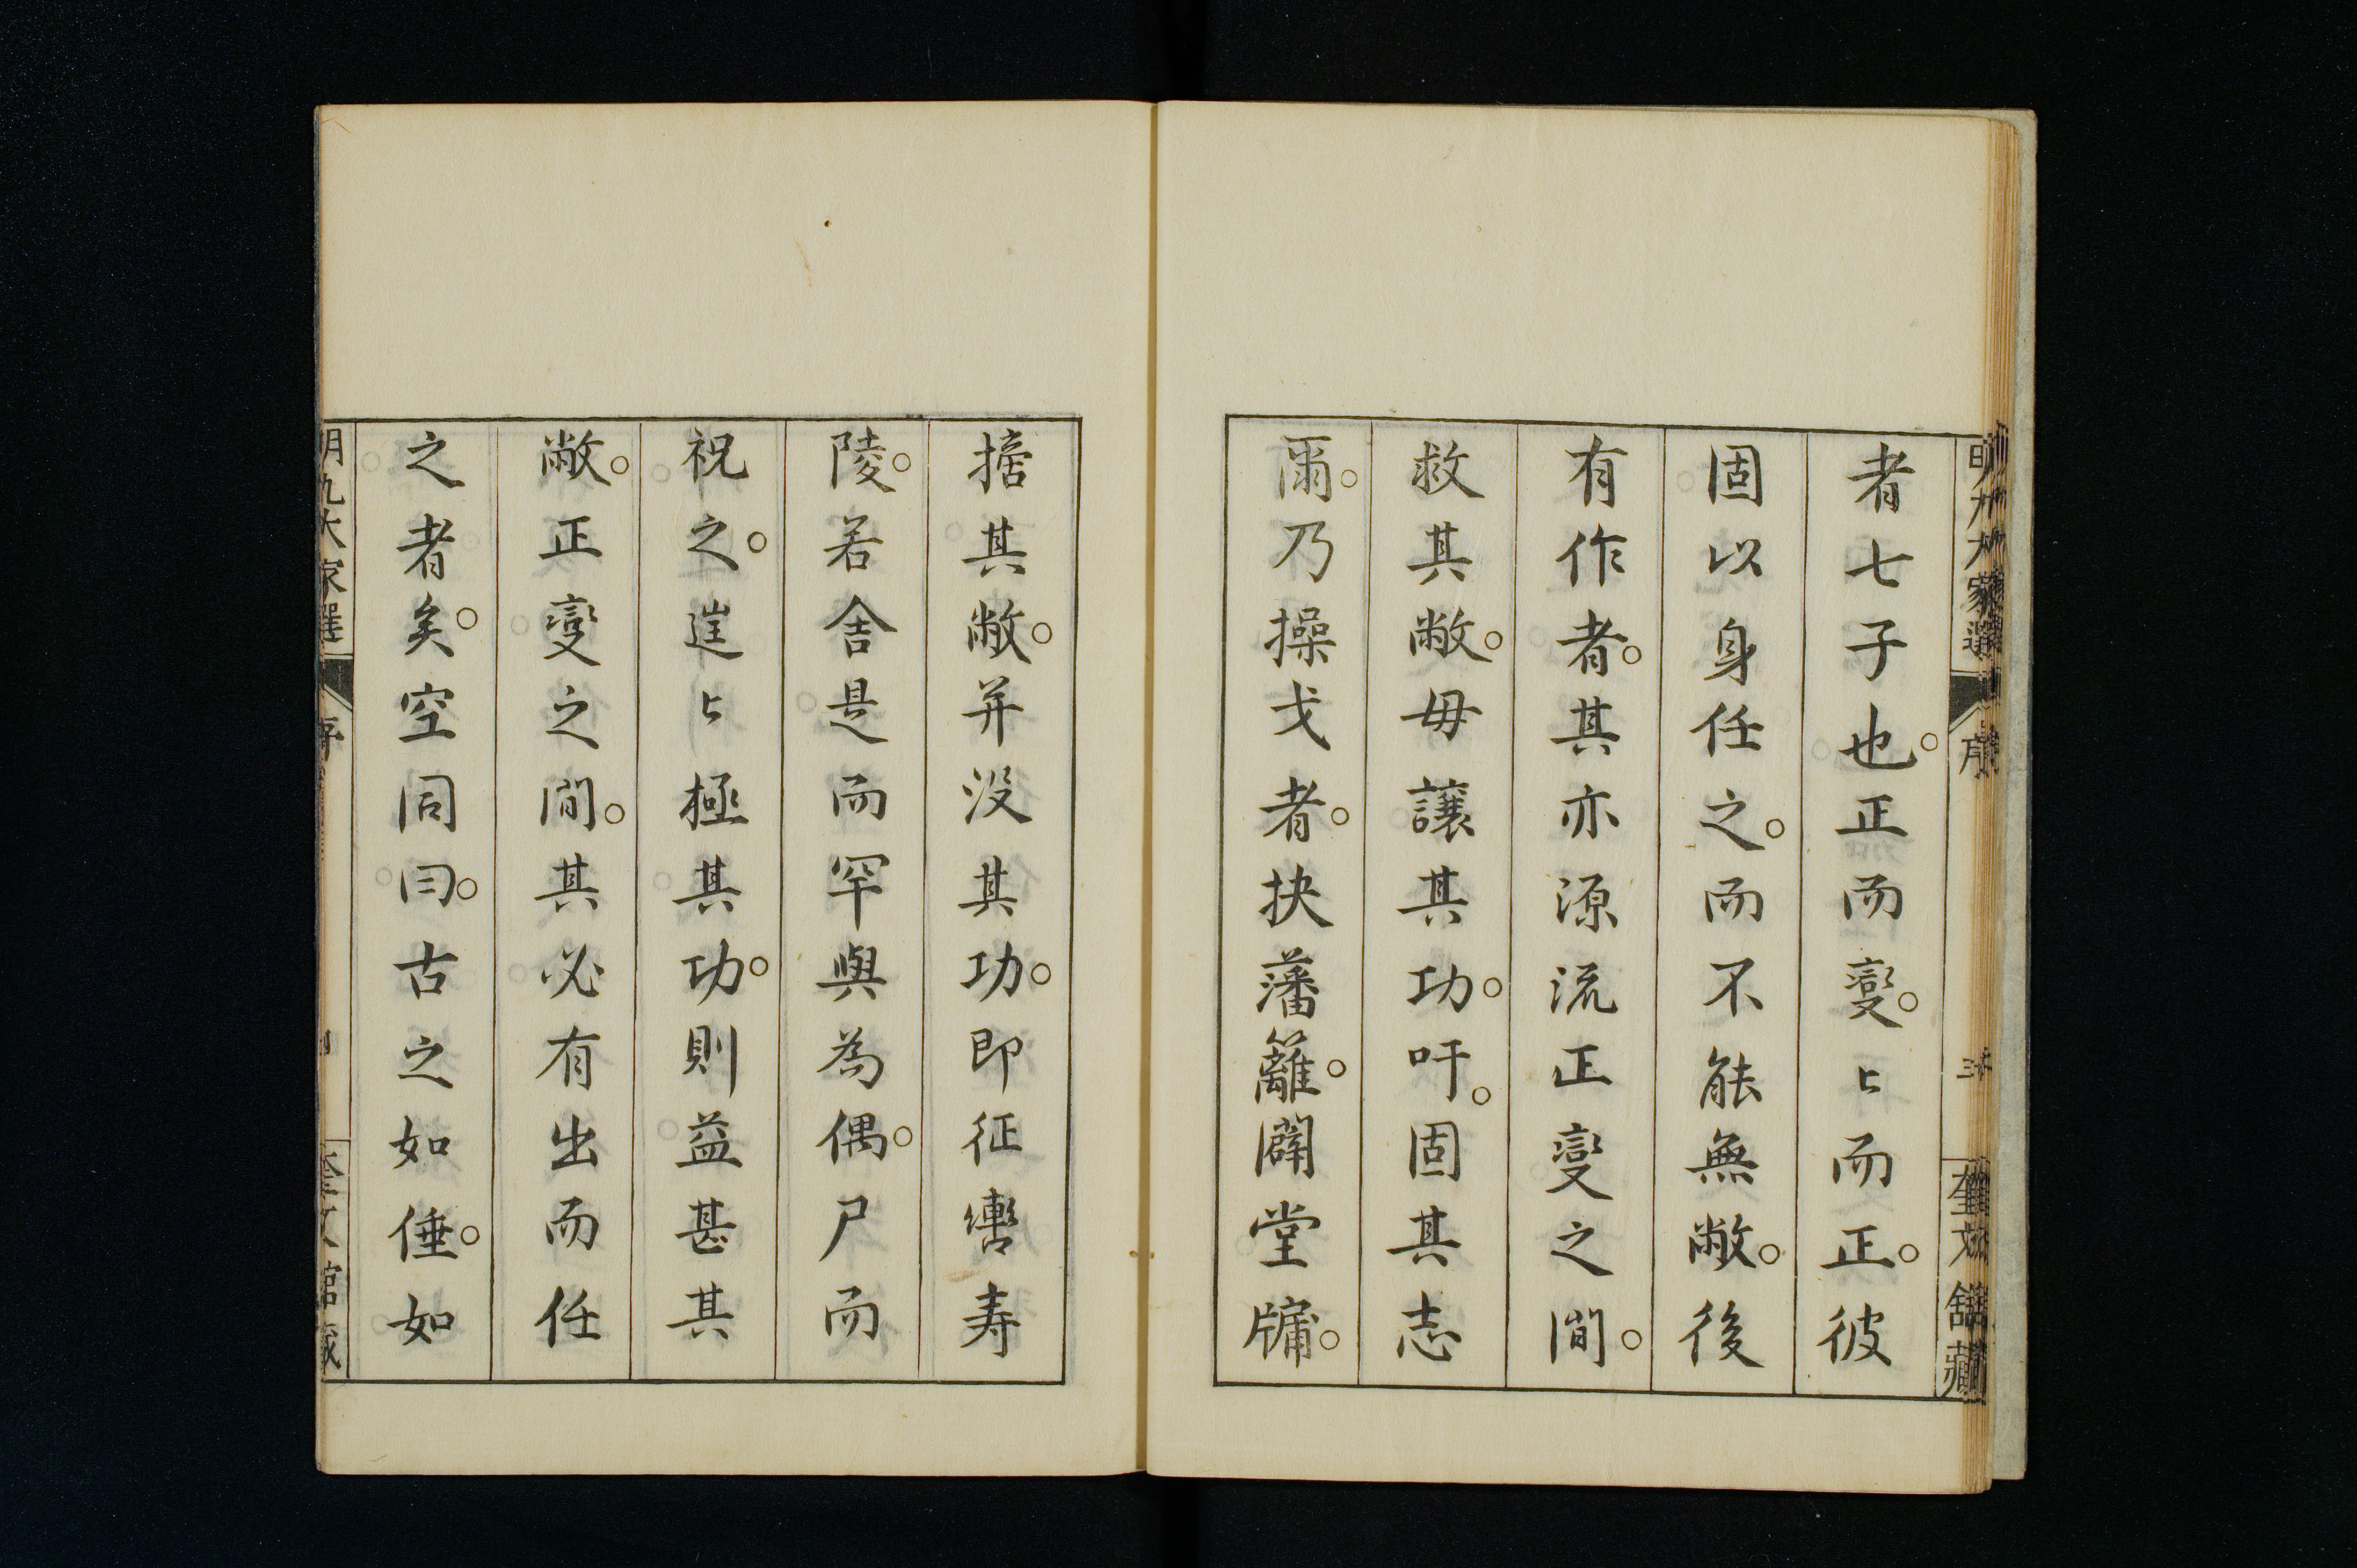 明九大家選 序 三 奎文館藏
者七子也。正而變。〻而正。彼
固以身任之。而不能無敝。後
有作者。其亦源流正變之間。
救其敝。毋讓其功。吁。固其志
爾。乃操戈者。抉藩籬。闢堂牗。
掊其敝。并沒其功。即征轡寿
陵。若舍是而罕與為偶。尸而
祝之。𨓏〻極其功。則益甚其
敝。正變之間。其必有出而任
之者矣。空同曰。古之如倕。如
明九大家選 序 奎文館藏